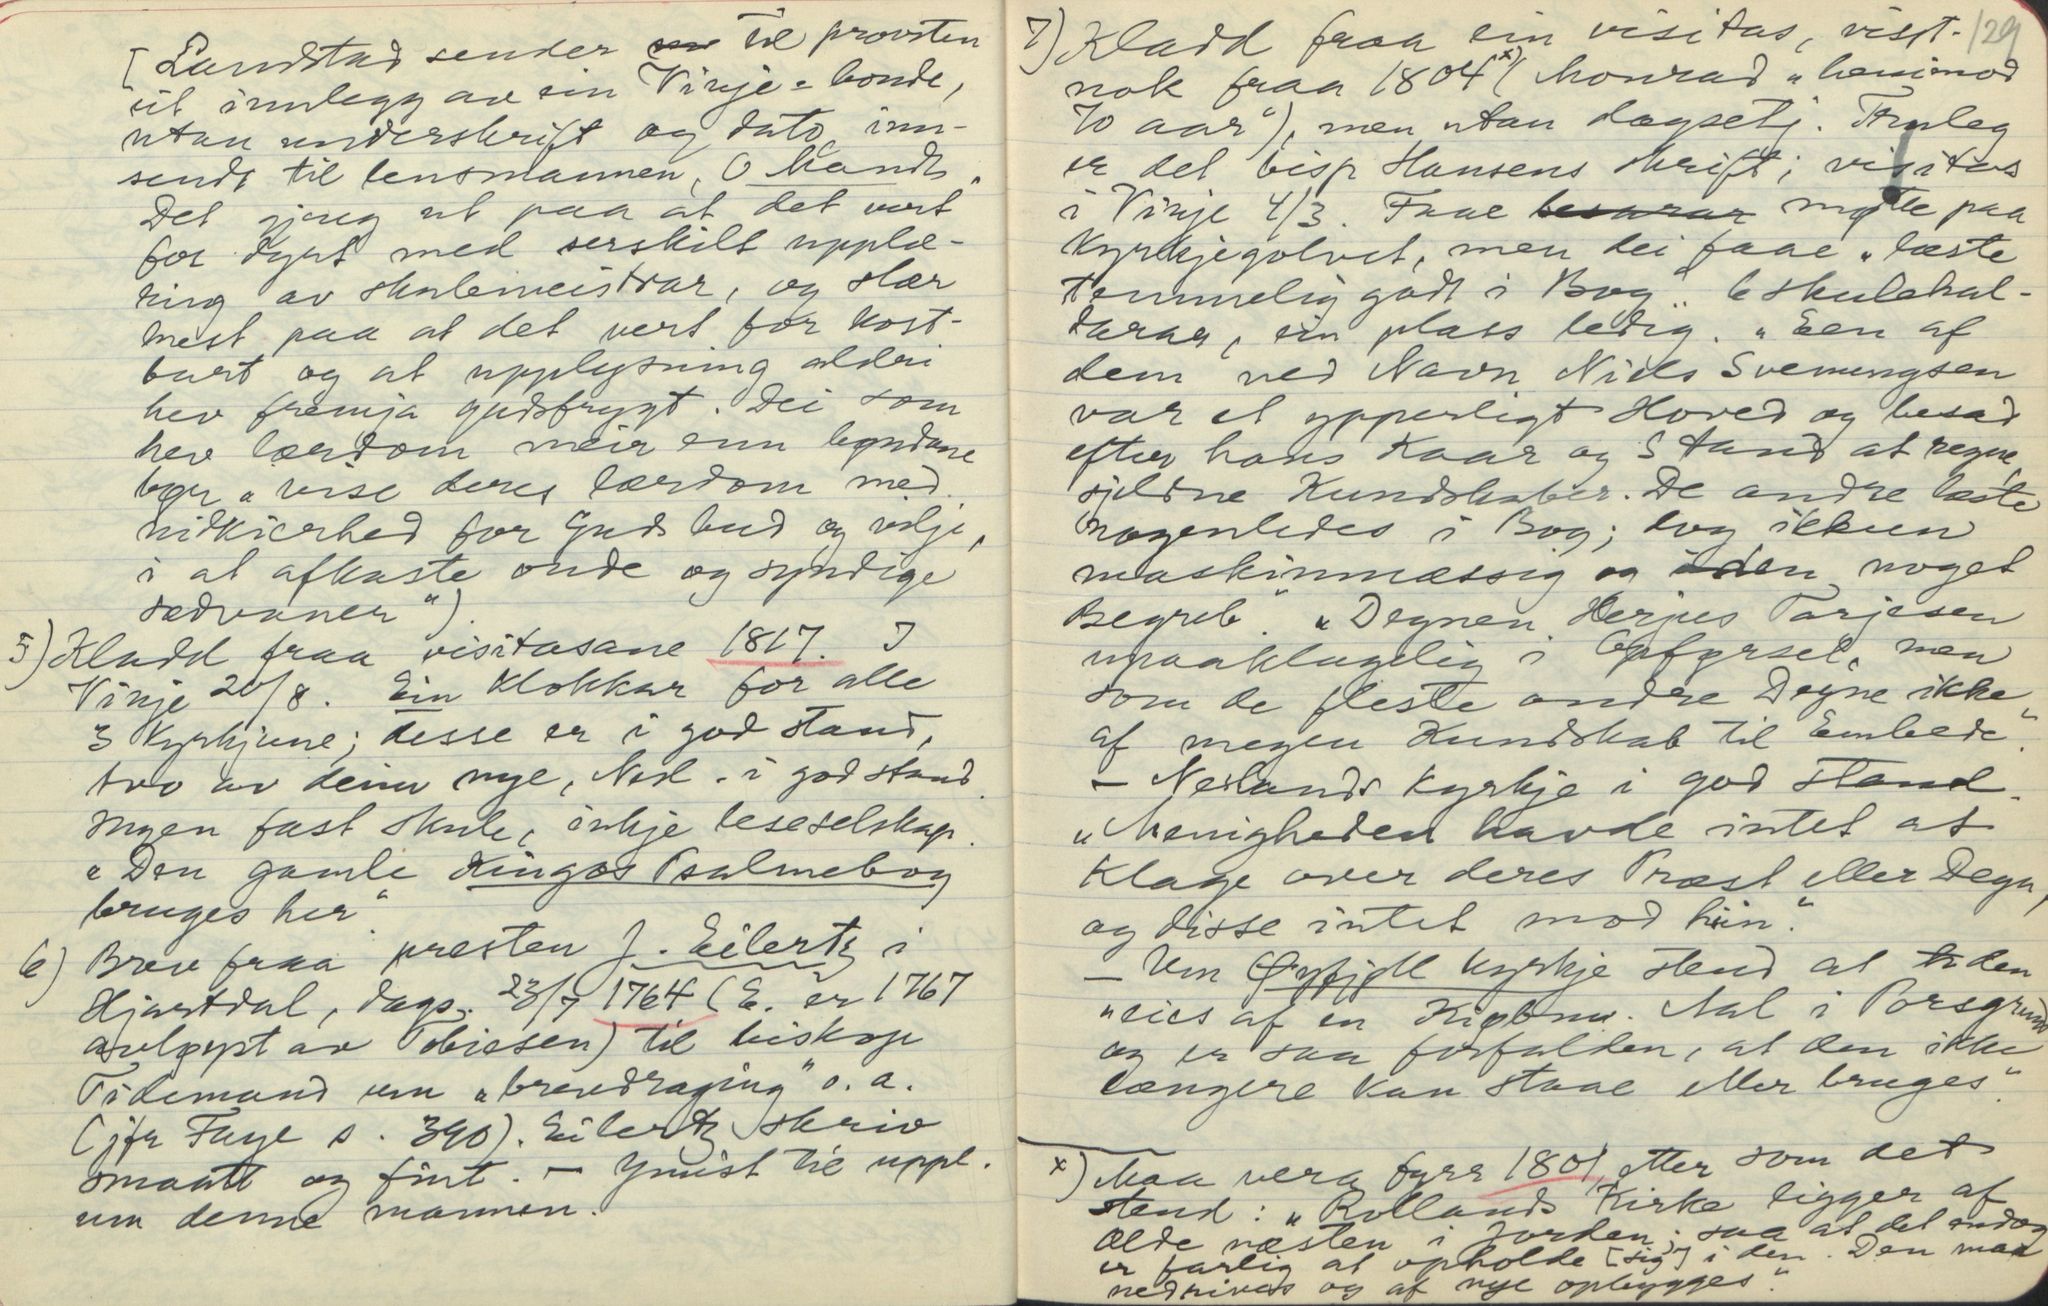 [Landstad sender til provsten
eit innlegg av ein Vinje-bonde,
utan underskrift og dato, inn-
sendt til lensmannen, O Mandt.
Det gjeng ut paa at det vert
for dyrt med serskilt upplæ-
ring av skulemeistrar, og slær
mest paa at det vert for kost-
bart og at upplysning aldri
hev fremja gudsfrygt. Dei som
hev lærdom meir enn bøndane
bør "vise deres lærdom med
nidkierhed for Guds bud og vilje,
i at afkaste onde og syndige
sædvaner").
5) Kladd fraa visitasane 1817. I
Vinje 20/8. Ein klokkar for alle
3 kyrkjune; desse er i god stand,
tvo av deim nye, Nesl. i god stand.
Ingen fast skule, inkje leseselskap.
"Den gamle Kingos Psalmebog
bruges her"
6) Brev fraa presten J. Eilertz i
Hjartdal, dags. 23/7 1764 (E. er 1767
avløyst av Tobiesen) til biskop
Tidemand um "brevdraging" o. a.
(jfr Faye s. 390). Eilertz skriv
smaatt og fint. - Ymist til uppl.
um denne mannen.
129
7) Kladd fraa ein visitas, visst-
nok fraa 1804 x) (Monrad "henimod
70 aar"), men utan dagsetj. Truleg
er det bisp Hansens skrift; visitas
i Vinje 4/3. Faae møtte paa
kyrkjegolvet, men dei faae "læste
temmelig godt i Bog". 6 skulehal-
darar, ein plass ledig. "Een af
dem ved Navn Niels Svenungsen
var et ypperligt Hoved og besad
efter hans Kaar og Stand at regne
sjeldne Kundskaber. De andre læste
nogenledes i Bog; dog ikkun
maskinmæssig og uden noget
Begreb." "Degnen Herjus Tarjesen
upaaklagelig i Opførsel, men
som de fleste andre Degne ikke
af megen Kundskab til Embede".
- Neslands kyrkje i god stand.
"Menigheden havde intet at
klage over deres Præst eller Degn,
og disse intet mod hiin."
- Um Øyfjell kyrkje stend at den
"eies af en Kiøbm. Aal i Porsgrund
og er saa forfalden, at den ikke
længere kan staae eller bruges".
x) Maa vera fyrr 1801 etter som det
stend: "Rollands Kirke ligger af
Ælde næsten i Jorden; saa at det endog
er farlig at opholde [sig] i den. Den maa
nedrives og af nye opbygges".